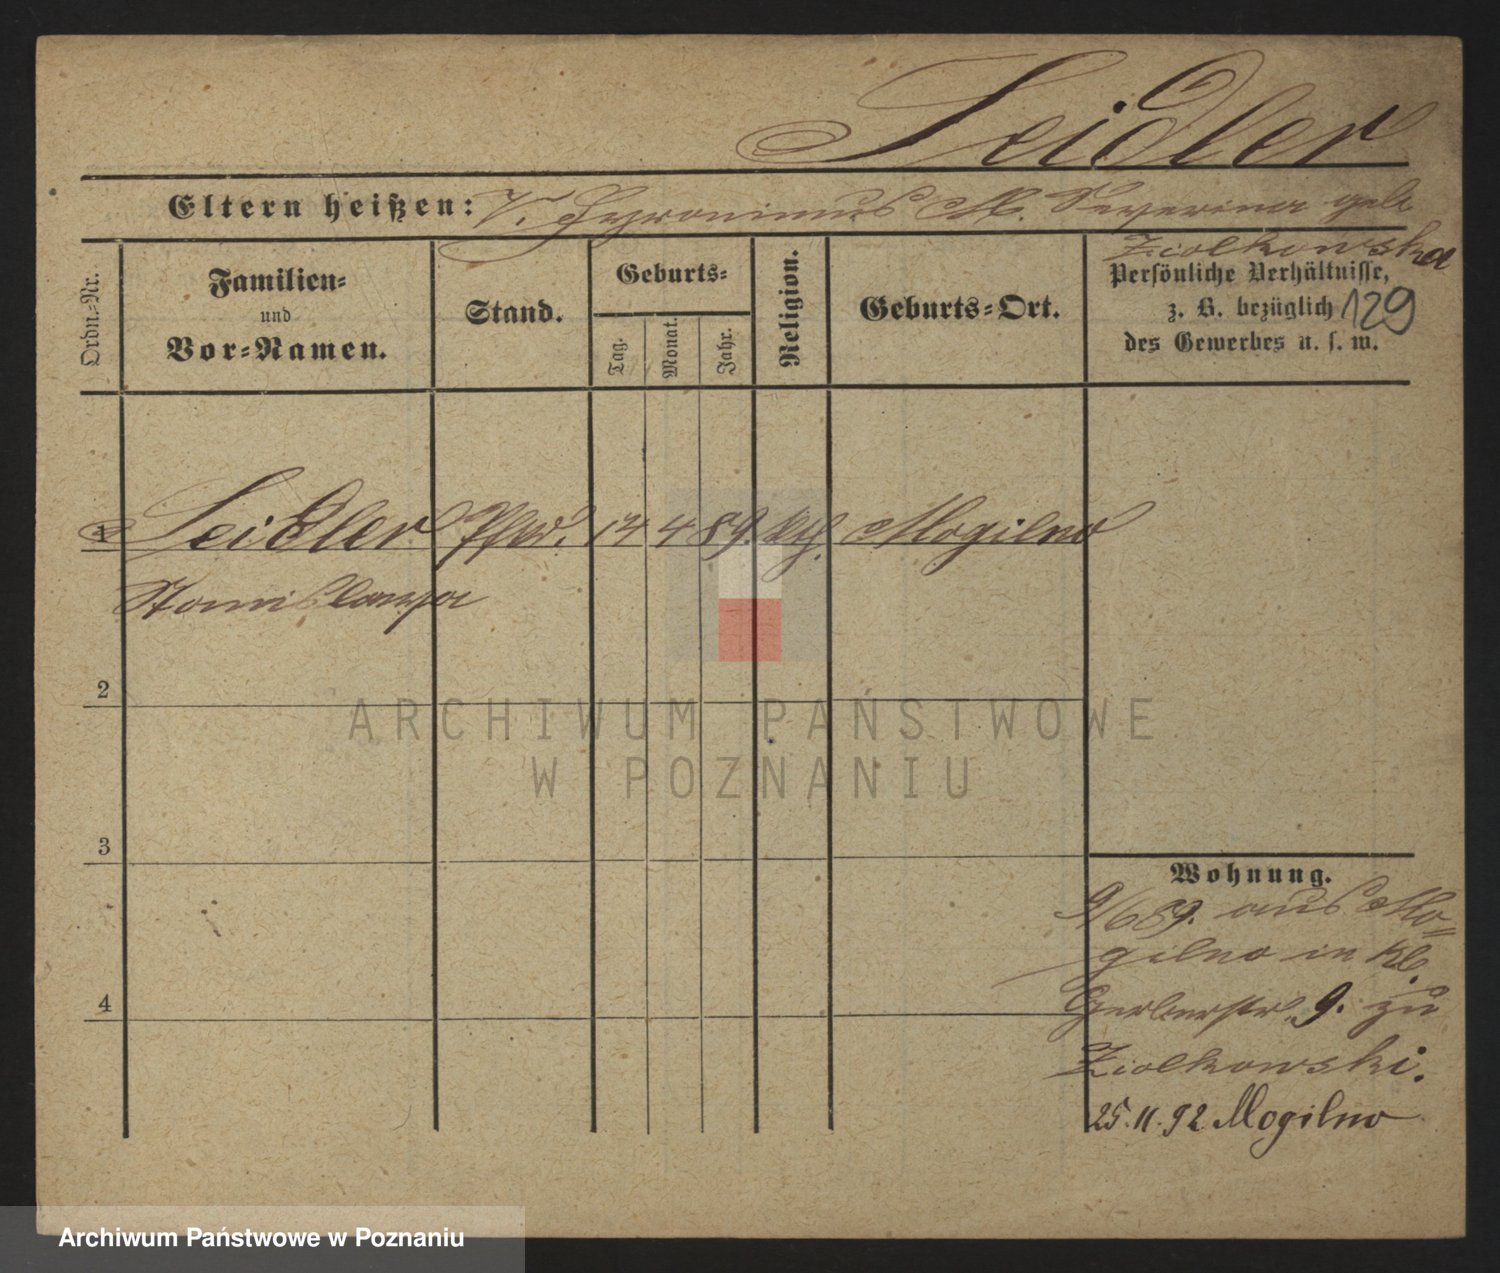 Seidler
Eltern heißen: V. Hyronimus M. Severina geb
Ziolkowska
Ordn.-Nr.
Familien-
und
Vor-Namen.
Stand.
Geburts-
Tag.
Monat.
Jahr.
Religion.
Geburts-Ort.
Persönliche Verhältnisse,
z. B. bezüglich
des Gewerbes u. s. w.
129
1 Seidler 14 4 89. kth. Mogilno
Stanislawa
2
3
4
Wohnung.
9/6 89. aus Mo-
gilno in Kl.
Gerberstr. 9. zu
Ziolkowski.
25.11.92 Mogilno
ARCHIWUM PAŃSTWOWE
W POZNANIU
Archiwum Państwowe w Poznaniu